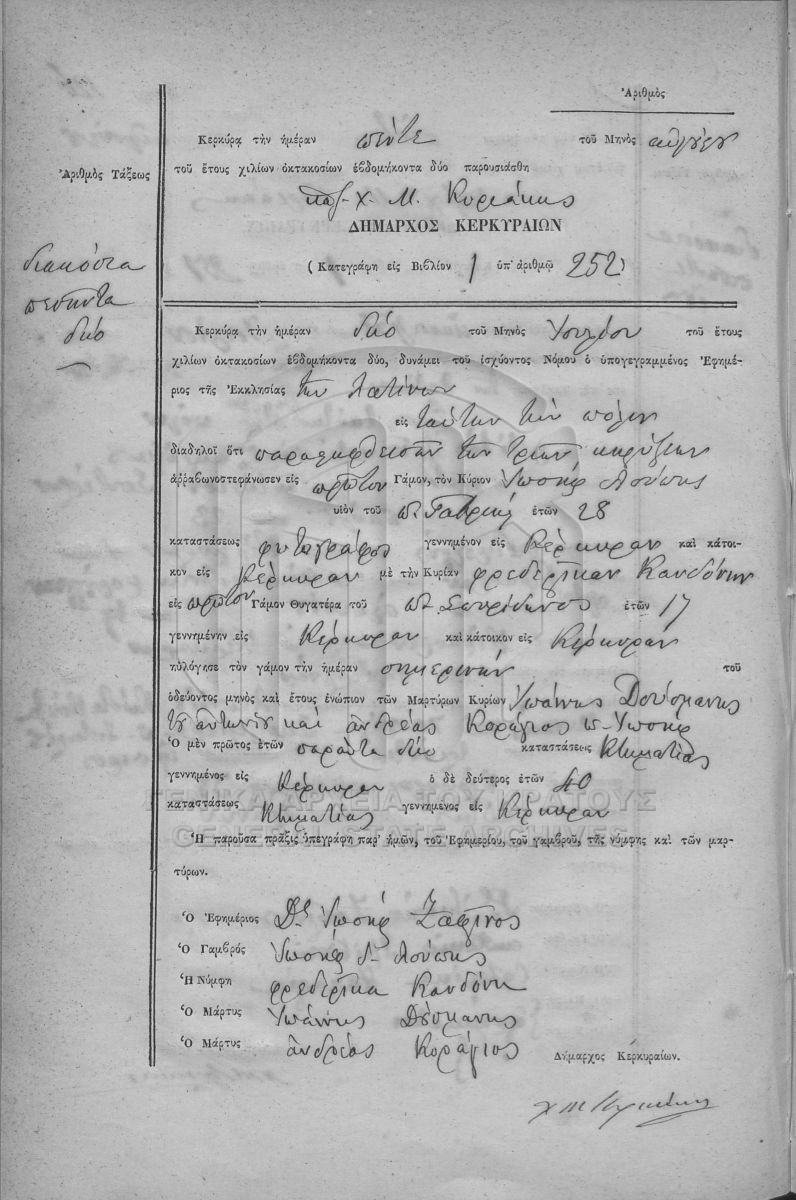 Ἀριθμὸς
Κερκύρᾳ τὴν ἡμέραν πέντε τοῦ Μηνὸς
Ἀριθμὸς Τάξεως
τοῦ ἔτους χιλίων ὀκτακοσίων ἑβδομήκοντα δύο παρουσιάσθη
Χ. Μ. Κυριάκης
ΔΗΜΑΡΧΟΣ ΚΕΡΚΥΡΑΙΩΝ
διακόσια
πενῆντα
δύο
(Κατεγράφη εἰς Βιβλίον 1 ὑπ' ἀριθμῷ 252)
Κερκύρᾳ τὴν ἡμέραν δύο τοῦ Μηνὸς Ἰουλίου τοῦ ἔτους
χιλίων ὀκτακοσίων ἑβδομήκοντα δύο, δυνάμει τοῦ ἰσχύοντος Νόμου ὁ ὑπογεγραμμένος Ἐφημέ-
ριος τῆς Ἐκκλησίας τῶν Λατίνων
εἰς ταύτην τὴν πόλιν
διαδηλοῖ ὅτι παραλειφθεισῶν τῶν τριῶν κηρύξεων
ἀῤῥαβωνοστεφάνωσεν εἰς πρῶτον Γάμον, τὸν Κύριον Ἰωσὴφ Λούπης
υἱὸν τοῦ π. Γαβριὴλ ἐτῶν 28
καταστάσεως φωτογράφος γεννημένον εἰς Κέρκυραν καὶ κάτοι-
κον εἰς Κέρκυραν μὲ τὴν Κυρίαν φρεδερίκαν Κανδόνη
εἰς πρῶτον Γάμον Θυγατέρα τοῦ π. Σπυρίδωνος ἐτῶν 17
γεννημένην εἰς Κέρκυραν καὶ κάτοικον εἰς Κέρκυραν
ηὐλόγησε τὸν γάμον τὴν ἡμέραν σημερινὴν τοῦ
ὁδεύοντος μηνὸς καὶ ἔτους ἐνώπιον τῶν Μαρτύρων Κυρίων Ἰωάννης Δούσμανης
τοῦ ἀντωνίου καὶ ἀνδρέας Κοράγιος π. Ἰωσὴφ
Ὁ μὲν πρῶτος ἐτῶν σαράντα δύο καταστάσεως Κτηματίας
γεννημένος εἰς Κέρκυραν ὁ δὲ δεύτερος ἐτῶν 40
ΓΕΝΙΚΑ ΑΡΧΕΙΑ ΤΟΥ ΚΡΑΤΟΥΣ
καταστάσεως Κτηματίας γεννημένος εἰς Κέρκυραν
GENERAL STATE ARCHIVES
Ἡ παροῦσα πράξις ὑπεγράφη παρ' ἡμῶν, τοῦ Ἐφημερίου, τοῦ γαμβροῦ, τῆς νύμφης καὶ τῶν μαρ-
τύρων.
Ὁ Ἐφημέριος Ἰωσὴφ
Ὁ Γαμβρός Ἰωσὴφ Λούπης
Ἡ Νύμφη φρεδερίκα Κανδόνη
Ὁ Μάρτυς Ἰωάννης Δούσμανης
Ὁ Μάρτυς ἀνδρέας Κοράγιος
Δήμαρχος Κερκυραίων.